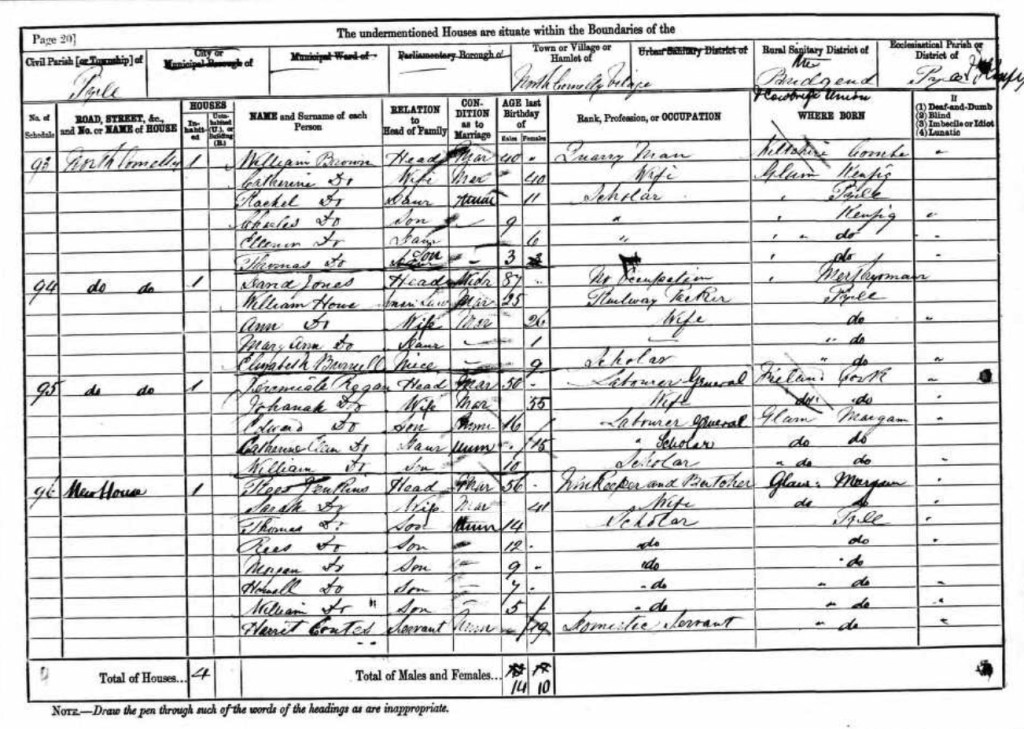 Page 20]
The undermentioned Houses are situate within the Boundaries of the
Civil Parish [or Township] of
City or Municipal Borough of
Municipal Ward of
Parliamentary Borough of
Town or Village or Hamlet of
Urban Sanitary District of
Rural Sanitary District of
Ecclesiastical Parish or District of
Pyle
North Cornelly Village
the Bridgend & Cowbridge Union
Pyle & Kenfig
No. of Schedule
ROAD, STREET, &c., and No. or NAME of HOUSE
HOUSES
Inhabited
Uninhabited (U.), or Building (B.)
NAME and Surname of each Person
RELATION to Head of Family
CONDITION as to Marriage
AGE last Birthday of
Males
Females
Rank, Profession, or OCCUPATION
WHERE BORN
If
(1) Deaf-and-Dumb
(2) Blind
(3) Imbecile or Idiot
(4) Lunatic
93 North Cornelly 1 William Brown Head Mar 40 " Quarry Man Wiltshire Coombe "
Catherine Do Wife Mar 40 Wife Glam Kenfig
Rachel Do Daur 11 Scholar " Pyle
Charles Do Son 9 " " Kenfig "
Eleanor Do Daur 6 " " " do "
Thomas Do Son 3 " do "
94 do do 1 David Jones Head Widr 87 No Occupation "
William Howe Mar 25 Railway Packer Pyle
Ann Do Wife Mar 26 Wife do "
Mary Ann Do Daur 1 " do
Elizabeth Niece 9 Scholar " do "
95 do do 1 Jeremiah Regan Head Mar 50 Labourer General Ireland Cork "
Johanah Do Wife Mar 55 Wife do do "
Edward Do Son Unm 16 Labourer General Glam Margam "
Catherine Do Daur Unm 15 " Scholar do do "
William Do Son 10 Scholar " do do "
96 New House 1 Rees Jenkins Head Mar 56 Innkeeper and Butcher Glam: Margam "
Sarah Do Wife Mar 41 Wife do do "
Thomas Do Son Unm 14 Scholar Pyle "
Rees Do Son 12 " do do "
Morgan Do Son 9 " do " do
Howell Do Son 7 " do " do "
William Do " Son 5 " do " do "
Harriet Coates Servant Unm 19 Domestic Servant " do "
Total of Houses... 4
Total of Males and Females...
14 10
NOTE.—Draw the pen through such of the words of the headings as are inappropriate.